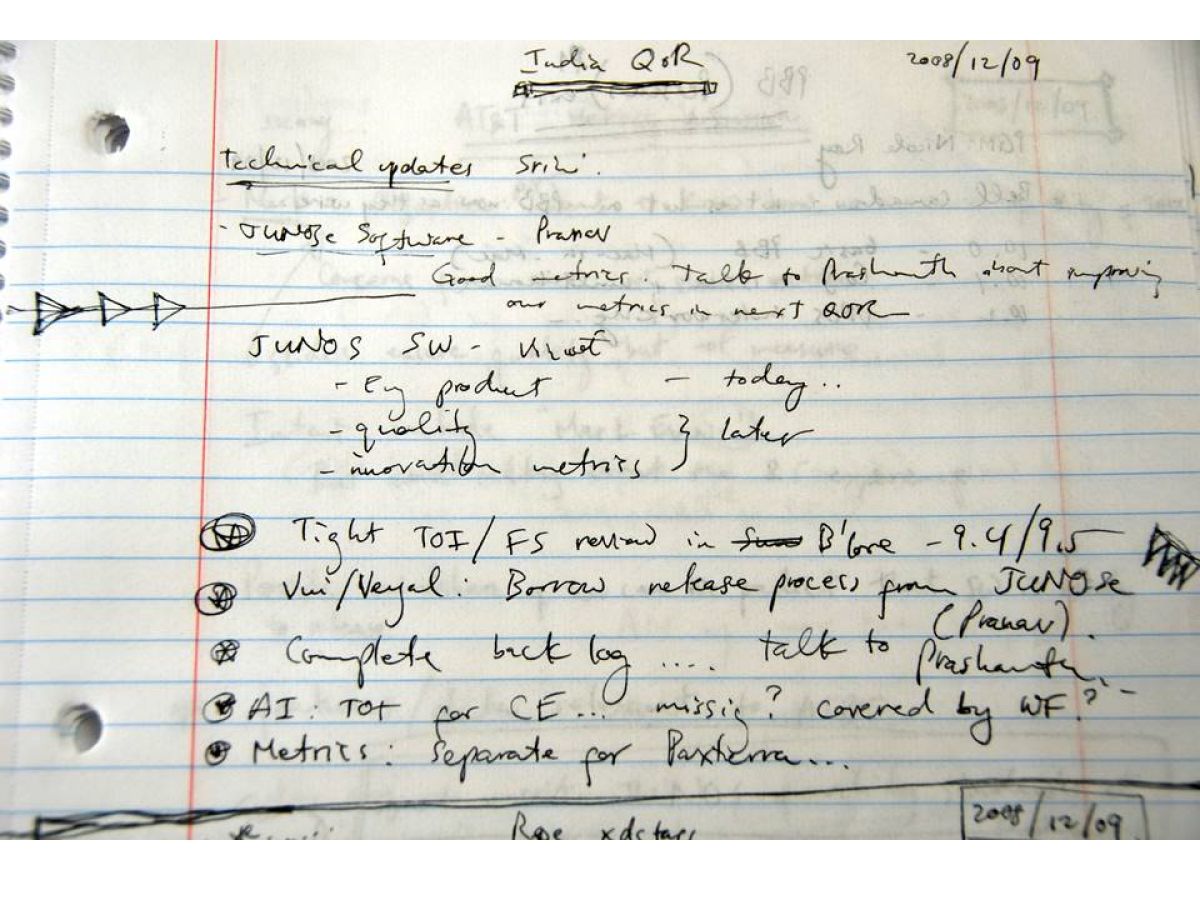 India QoR
2008/12/09
Technical updates Srini.
- JUNOSe Software - Pranav
Good metrics. Talk to Prashanth about improving
our metrics in next QOR
JUNOS SW -
- Eng product - today..
- quality } Later
- innovation metrics
Tight TOI/FS review in B'lore - 9.4/9.5
Borrow release process from JUNOSe
(Pranav).
Complete back log .... talk to Prashanth..
AI: TOI for CE... missig? covered by WF?
Metrics: Separate for Paxterra...
2008/12/09